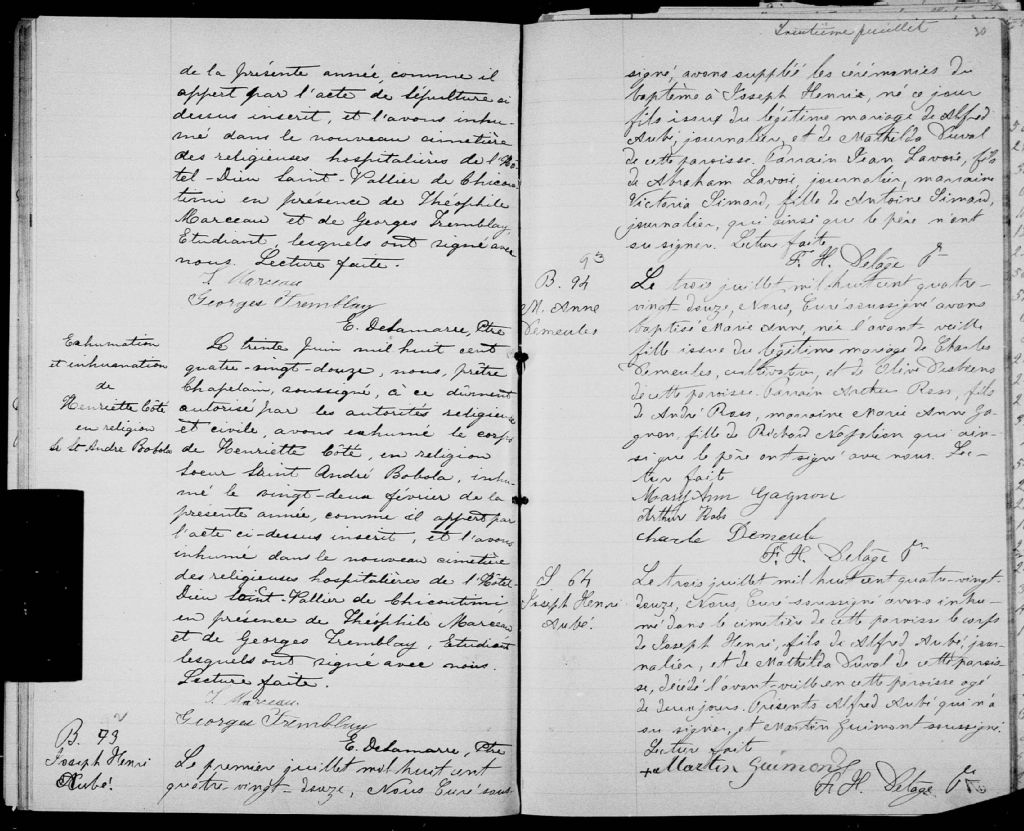 de la présente année, comme il
appert par l'acte de sépulture ci
dessus inscrit, et l'avons inhu-
mé dans le nouveau cimetière
des religieuses hospitalières de l'Hô-
tel-Dieu Saint-Vallier de Chicou-
timi en présence de Théophile
Marceau et de Georges Tremblay,
Etudiant, lesquels ont signé avec
nous. Lecture faite.
T. Marceau
Georges Tremblay
E. DeLamarre, Ptre
Exhumation
et inhumation
de
Henriette Côté
en religion
Sr St André Bobola
Le trente Juin mil huit cent
quatre-vingt-douze, nous, prêtre
Chapelain, soussigné, à ce dûment
autorisé par les autorités religieuse
et civile, avons exhumé le corps
de Henriette Côté, en religion
Soeur Saint André Bobola, inhu-
mé le vingt-deux février de la
présente année, comme il appert par
l'acte ci-dessus inscrit, et l'avons
inhumé dans le nouveau cimetière
des religieuses hospitalières de l'Hôtel-
Dieu Saint-Vallier de Chicoutimi
en présence de Théophile Marceau
et de Georges Tremblay, Etudiant
lesquels ont signé avec nous.
Lecture faite.
T. Marceau
Georges Tremblay
E. DeLamarre, Ptre
B. 93
Joseph Henri
Aubé.
Le premier juillet mil huit cent
quatre-vingt-douze, Nous Curé sous-
Trentième feuillet 30
signé, avons suppléé les cérémonies du
baptême à Joseph Henri, né ce jour
fils issu du légitime mariage de Alfred
Aubé, journalier, et de Mathilda Duval
de cette paroisse. Parrain Jean Lavoie, fils
de Abraham Lavoie, journalier, marraine
Victoria Simard, fille de Antoine Simard,
journalier, qui ainsi que le père n'ont
su signer. Lecture faite
F. H. Delâge Ptr
93
B. 94
M. Anne
Demeules
Le trois juillet mil huit cent quatre-
vingt-douze, Nous, Curé soussigné avons
baptisé Marie Anne, née l'avant-veille
fille issue du légitime mariage de Charles
Demeules, cultivateur, et de Olive
de cette paroisse. Parrain Arthur Ross, fils
de André Ross, marraine Marie Anne Ga-
gnon, fille de Richard Napoléon qui ain-
si que le père ont signé avec nous. Lec-
ture faite
Mary Ann Gagnon
Arthur
Charle Demeule
F. H. Delâge Ptr
S 64
Joseph Henri
Aubé.
Le trois juillet mil huit cent quatre-vingt-
douze, Nous, Curé soussigné avons inhu-
mé dans le cimetière de cette paroisse le corps
de Joseph Henri, fils de Alfred Aubé, jour-
nalier, et de Mathilda Duval de cette parois-
se, décédé l'avant-veille en cette paroisse agé
de deux jours. Présents Alfred Aubé qui n'a
su signer, et Martin Guimont soussigné.
Lecture faite
Martin Guimond
F. H. Delâge Ptr